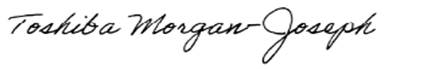 Toshiba Morgan-Joseph